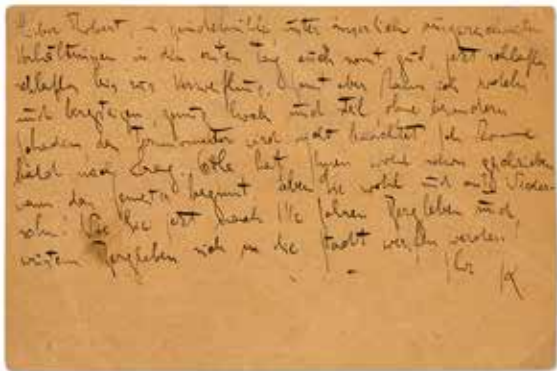 Lieber Robert, in Spindelmühle, unter äusserlich ausgezeichneten
Verhältnissen, in den ersten Tag auch sonst gut, jetzt schlaflos,
schlaflos bis zur Verzweiflung. Sonst aber kann ich rodeln
und bergsteigen, genug hoch und steil, ohne besondern
Schaden, der Termometer wird nicht beachtet. Ich komme
bald nach Prag. Ottla hat Ihnen wohl schon geschrieben
wann das Semester beginnt. Leben Sie wohl und auf Wieder-
sehn! Wie Sie jetzt nach 1½ Jahren Bergleben und,
wüstem Bergleben sich in die Stadt werfen werden!
Ihr K